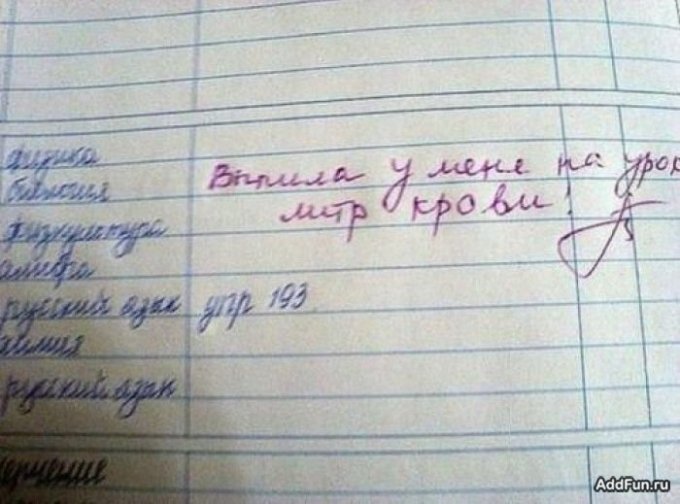 физика
биология
Выпила у меня на урок
литр крови!
физкультура
алгебра
русский язык упр 193
химия
русский язык
черчение
AddFun.ru